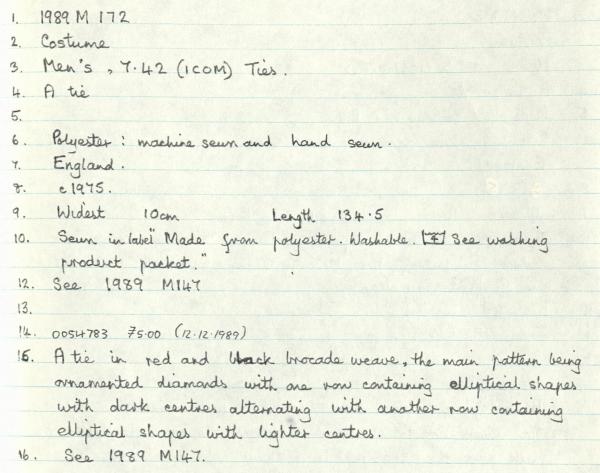 1. 1989 M 172
2. Costume
3. Men's, 7.42 (ICOM) Ties.
4. A tie
5.
6. Polyester: machine sewn and hand sewn.
7. England.
8. c1975.
9. Widest 10cm Length 134.5
10. Sewn in label "Made from polyester. Washable. 4 See washing
product packet."
12. See 1989 M147
13.
14. 0054783 75.00 (12.12.1989)
15. A tie in red and black brocade weave, the main pattern being
ornamented diamonds with one row containing elliptical shapes
with dark centres alternating with another row containing
elliptical shapes with lighter centres.
16. See 1989 M147.